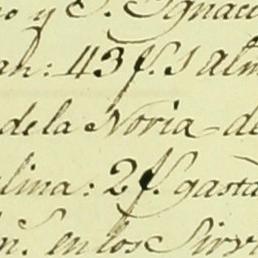 y S. Ignaci
an: 43 f. 1 alm
de la Noria = de
lina: 2 f. gasta
n. en los Sirvi